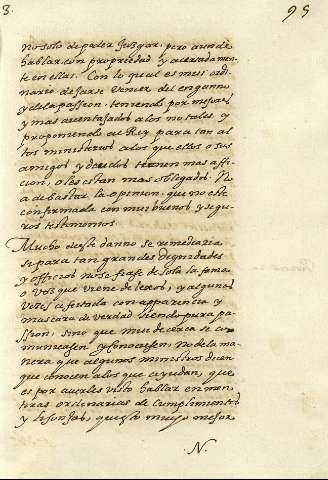 3.
95
no solo de poder Juzgar, pero aun de
hablar con propriedad y acertadamen
te en ellas. Con lo qual es mui ordi
nario dejarse vencer del enganno
y de la passion, teniendo por mejores
y mas aventajados a los no tales, y
proponiendo al Rey para tan al
tos ministerios a los que ellos o sus
amigos y deudos tienen mas affi
cion, o les estan mas obligados. No
a de bastar la opinion, que no esté
confirmada con mui buenos y segu
ros testimonios.
Mucho deste danno se remediaria
si para tan grandes dignidades
y officios no se fiase de sola la fama
o voz que viene de lexos, y algunas
vezes afectada con apparencia y
mascara de verdad siendo pura pa
ssion, sino que mui de cerca se co
municassen y conociessen, no de la ma
nera que algunos ministros dicen
que conocen a los que ayudan, que
es por averles visto hablar en men
tiras ordinarias de cumplimientos
y lisonjas, que es mui mejor
.N.